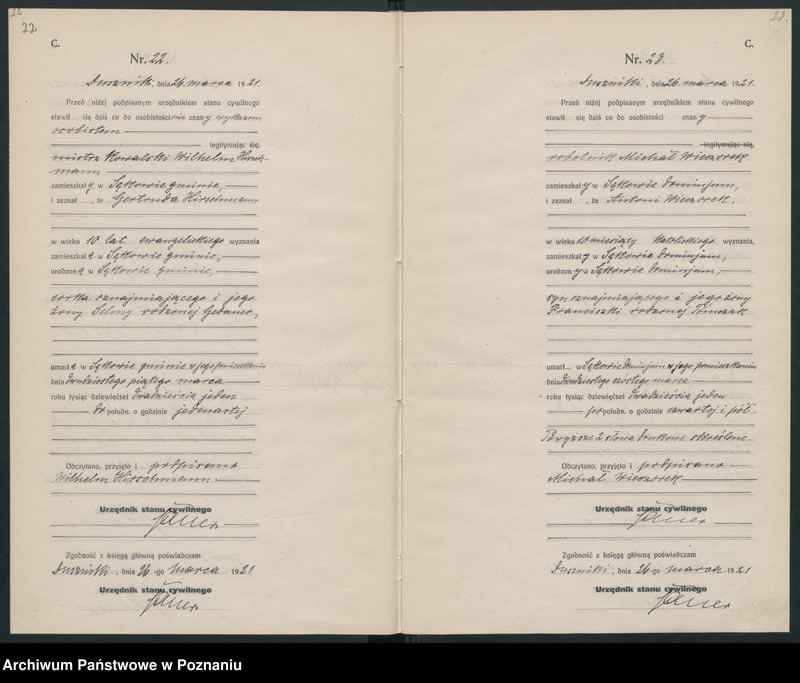 22
22
C.
Nr. 22.
Duszniki, dnia 26 marca 1921.
Przed niżej podpisanym urzędnikiem stanu cywilnego
stawił się dziś co do osobistości znany wykazem
osobistem
legitymując się,
mistrz Kowalski Wilhelm Hirsch-
mann
zamieszkały w Sękowie gminie,
i zeznał, że Gertruda Hirschmann
w wieku 10 lat ewangelickiego wyznania
zamieszkała w Sękowie gminie,
urodzona w Sękowie gminie,
córka oznajmiającego i jego
żony Seliny rodzonej
umarła w Sękowie gminie w jego pomieszkaniu
dnia dwudziestego piątego marca
roku tysiąc dziewięćset dwadzieścia jeden
do połudn. o godzinie jedenastej
Odczytano, przyjęto i podpisano
Wilhelm Hirschmann
Urzędnik stanu cywilnego
Zgodność z księgą główną poświadczam
Duszniki, dnia 26-go marca 1921
Urzędnik stanu cywilnego
23.
C.
Nr. 23.
Duszniki, dnia 26 marca 1921.
Przed niżej podpisanym urzędnikiem stanu cywilnego
stawił się dziś co do osobistości znany
legitymując się,
robotnik Michał Wieczorek
zamieszkały w Sękowie Dominjum,
i zeznał, że Antoni Wieczorek,
w wieku 10 miesięcy katolickiego wyznania,
zamieszkały w Sękowie Dominjum,
urodzony w Sękowie Dominjum,
syn oznajmiającego i jego żony
Franciszki rodzonej Tomczak
umarł w Sękowie Dominjum w jego pomieszkaniu
dnia dwudziestego szóstego marca
roku tysiąc dziewięćset dwadzieścia jeden
po połudn. o godzinie czwartej i pół.
Powyższe 2 słowa drukowe określone.
Odczytano, przyjęto i podpisano
Michał Wieczorek
Urzędnik stanu cywilnego
Zgodność z księgą główną poświadczam
Duszniki, dnia 26-go marca 1921
Urzędnik stanu cywilnego
Archiwum Państwowe w Poznaniu